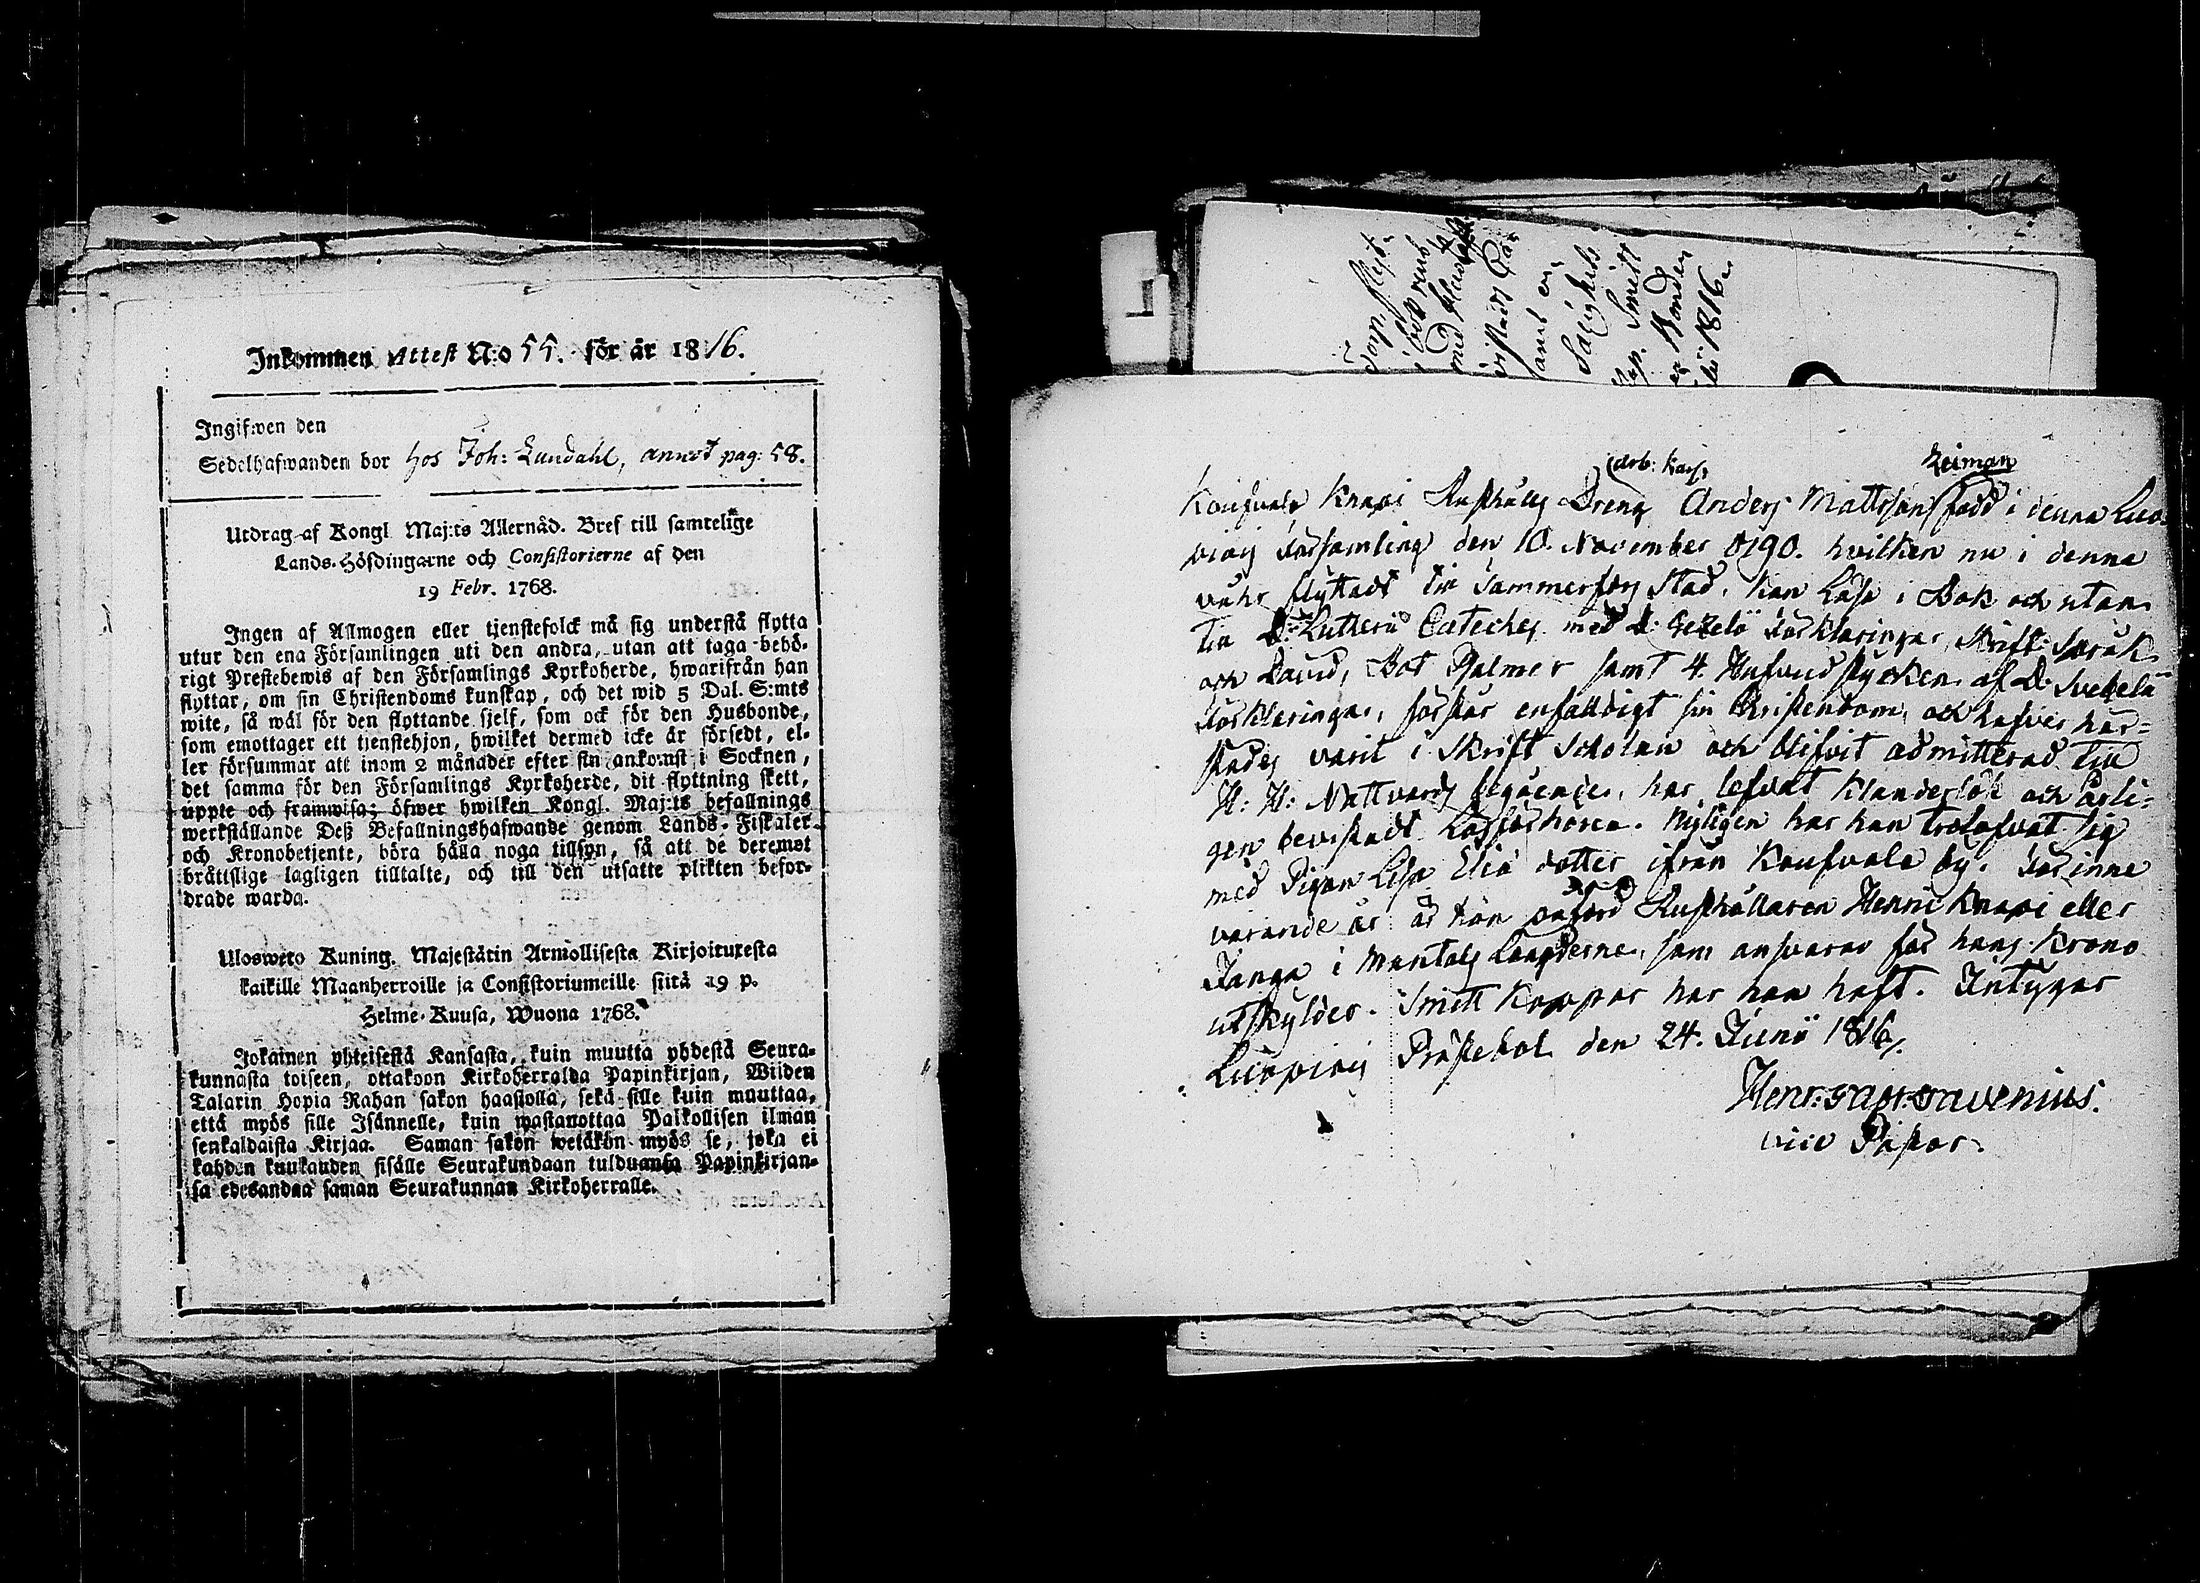 Inkommen Attest N:o 55. för år 1816.
Ingifwen den
Sedelhafwanden bor hos Joh: Lundahl, annot pag: 58.
Utdrag af Kongl. Maj:ts Allernåd. Bref till samtelige
Lands-Höfdingarne och Consistorierne af den
19 Febr. 1768.
Ingen af Allmogen eller tjenstefolck må sig understå flytta
utur den ena Församlingen uti den andra, utan att taga behö-
rigt Prestebewis af den Församlings Kyrkoherde, hwarifrån han
flyttar, om sin Christendoms kunskap, och det wid 5 Dal. S:mts
wite, så wäl för den flyttande sjelf, som ock för den Husbonde,
som emottager ett tjenstehjon, hwilket dermed icke är försedt, el-
ler försummar att inom 2 månader efter sin ankomst i Socknen,
det samma för den Församlings Kyrkoherde, dit flyttning skett,
uppte och framwisa; öfwer hwilken Kongl. Maj:ts befallnings
werkställande Deß Befallningshafwande genom Lands-Fiskaler
och Kronobetjente, böra hålla noga tillsyn, så att de deremot
bråttslige lagligen tilltalte, och till den utsatte plikten befor-
drade warda.
Ulosweto Kuning. Majestätin Armollisesta Kirjoituxesta
kaikille Maanherroille ja Consistoriumeille siitä 19 p.
Helme-Kuusa, Wuona 1768.
Jokainen yhteisestä Kansasta, kuin muutta yhdestä Seura-
kunnasta toiseen, ottakoon Kirkoherralda Papinkirjan, Wiiden
Talarin Hopia Rahan sakon haastolla, sekä sille kuin muuttaa,
että myös sille Isännelle, kuin wastanottaa Palkollisen ilman
senkaldaista Kirjaa. Saman sakon wetäkön myös se, joka ei
kahden kuukauden sisälle Seurakundaan tulduansa Papinkirjan-
sa edesandaa saman Seurakunnan Kirkoherralle.
1816.
arb: Karl Reiman
Kaufvala Knapi Rusthålls Dreng Anders Mattsson född i denna Luo-
piois Församling den 10. November 1790. hvilken nu i denna
våhr flyttadt till Tammerfors Stad, kan läsa i Bok och utan-
till D: Lutherii Cateches med D: Gezelii Förklaringar, Skrift-Språk
och David, Bot Psalmer samt 4. Hufvudstycken af D: Svebelii
Förklaringar, förstår enfaldigt sin Christendom, och hafver här-
städes varit i Skrift Scholan och blifvit admitterad till
H: H: Nattvards begående, har lefvat klanderlöst och årli-
gen bevistadt Läsförhören. Nyligen har han trolofvat sig
med Pigan Lisa Elia dotter ifrån Kaufvala by. För inne
varande år är han påförd Rusthållaren Henric Knapi eller
Janga i Mantals Längderne, som ansvarar för hans Krono
utskylder. Smitt Koppor har han haft. Intygar
Luopiois Prästebol den 24. Junii 1816.
Henr: Savenius.
vice Pastor.